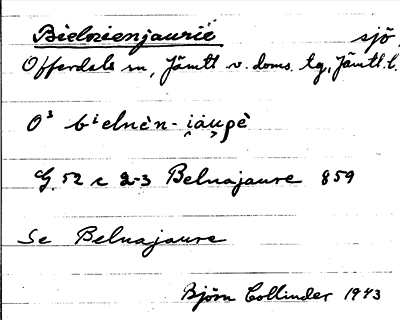 Bielnienjaurie sjö
Offerdals sn, Jämtl v. doms. tg, Jämtl. l.
O³ bⁱelnèn-i̯au̯rè
G. 52 c 2-3 Belnajaure 859
Se Belnajaure
Björn Collinder 1943